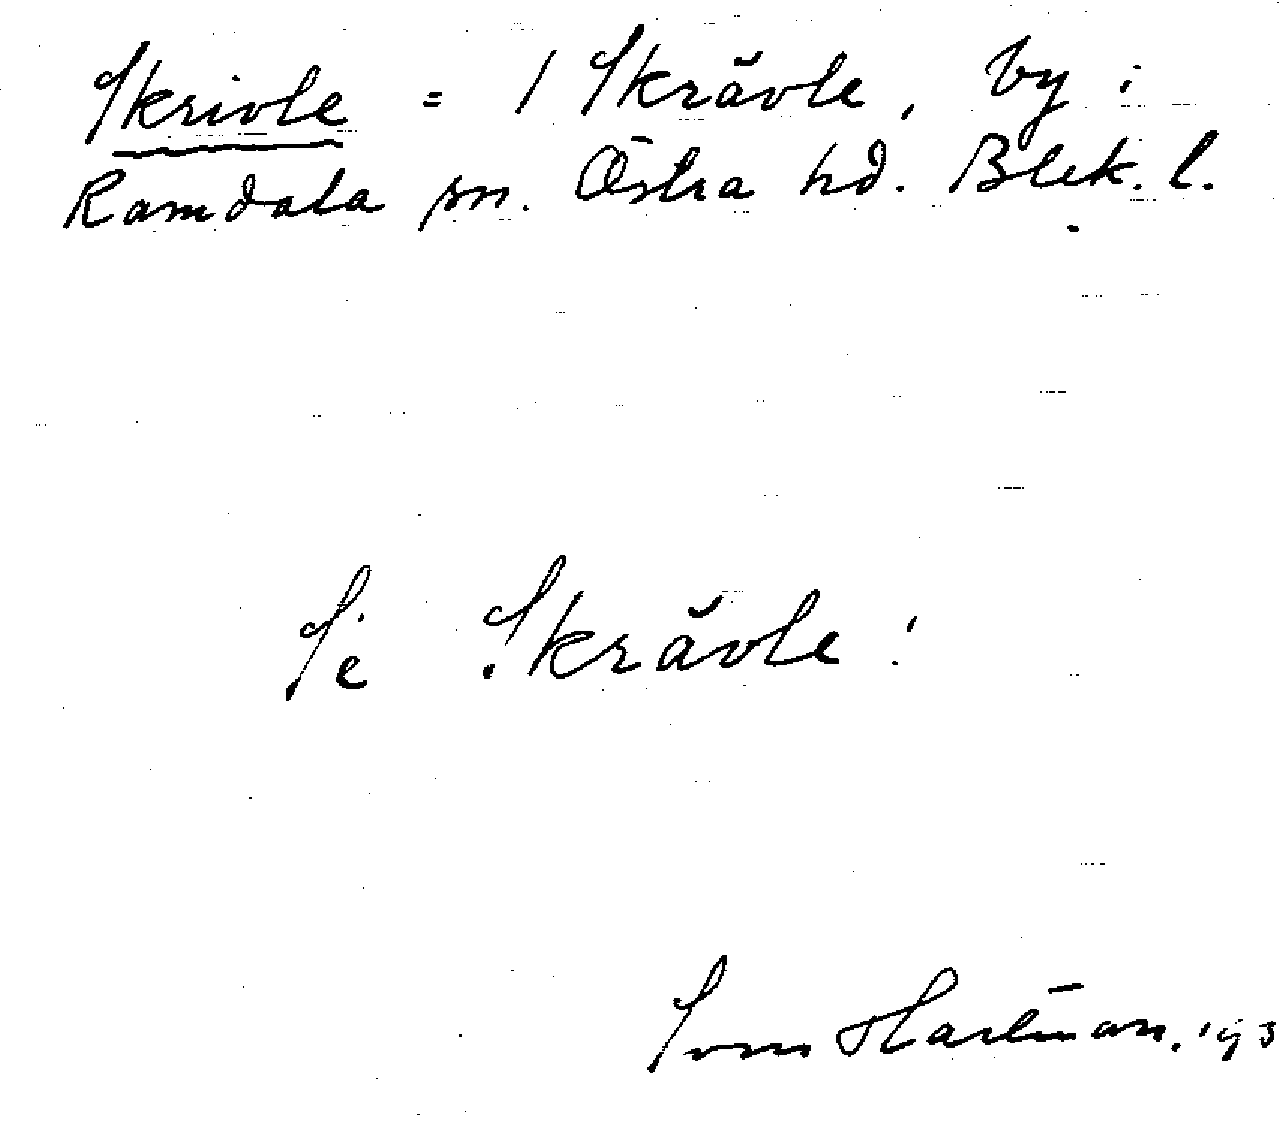 Skrivle = / Skrävle, by i
Ramdala sn. Östra hd. Blek. l.
Se Skrävle!
Sven Hartman. 193